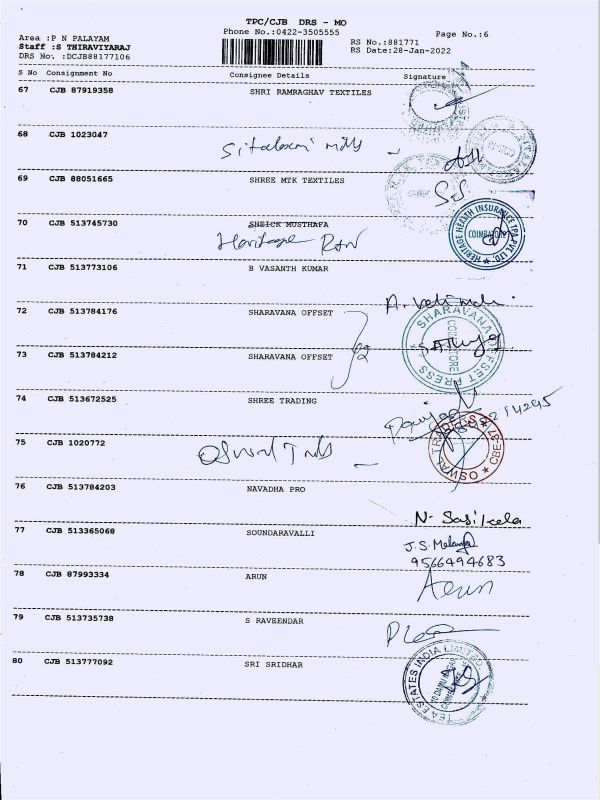 TPC/CJB DRS - MO
Area : P N PALAYAM
Phone No.:0422-3505555
Page No.:6
Staff :S THIRAVIYARAJ
RS No.:881771
DRS No. :DCJB88177106
RS Date:28-Jan-2022
S No Consignment No Consignee Details Signature
67 CJB 87919358 SHRI RAMRAGHAV TEXTILES
68 CJB 1023047
69 CJB 88051665 SHREE MTK TEXTILES
70 CJB 513745730 SHEICK MUSTHAFA
HERITAGE HEALTH INSURANCE TPA PVT. LTD.
COIMBATORE
Heritage
71 CJB 513773106 B VASANTH KUMAR
72 CJB 513784176 SHARAVANA OFFSET
SHARAVANA OFFSET PRESS
COIMBATORE
73 CJB 513784212 SHARAVANA OFFSET
74 CJB 513672525 SHREE TRADING
75 CJB 1020772
OSWAL TRADERS
CBE-37
76 CJB 513784203 NAVADHA PRO
N. Sasikala
77 CJB 513365068 SOUNDARAVALLI
9566494683
78 CJB 87993334 ARUN
Arun
79 CJB 513735738 S RAVEENDAR
80 CJB 513777092 SRI SRIDHAR
TEA ESTATES INDIA LIMITED